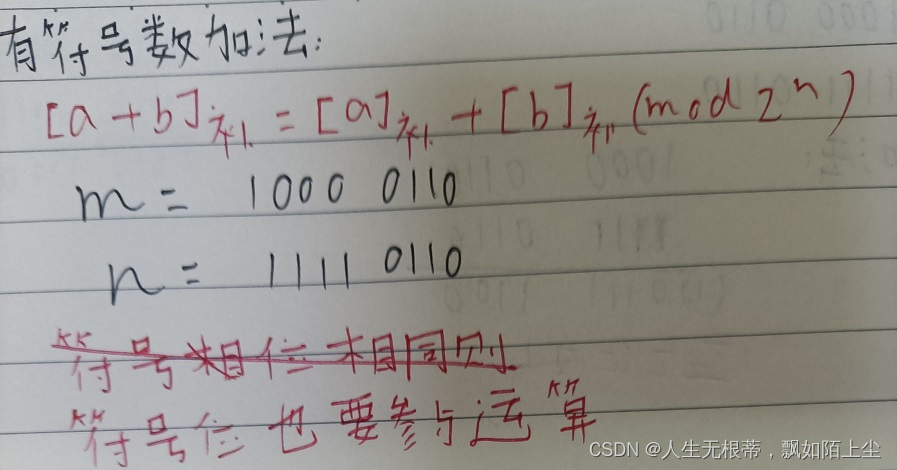 有符号数加法:
[a+b]补 = [a]补 + [b]补 (mod 2ⁿ)
m = 1000 0110
n = 1111 0110
符号位相同则
符号位也要参与运算
CSDN @人生无根蒂，飘如陌上尘